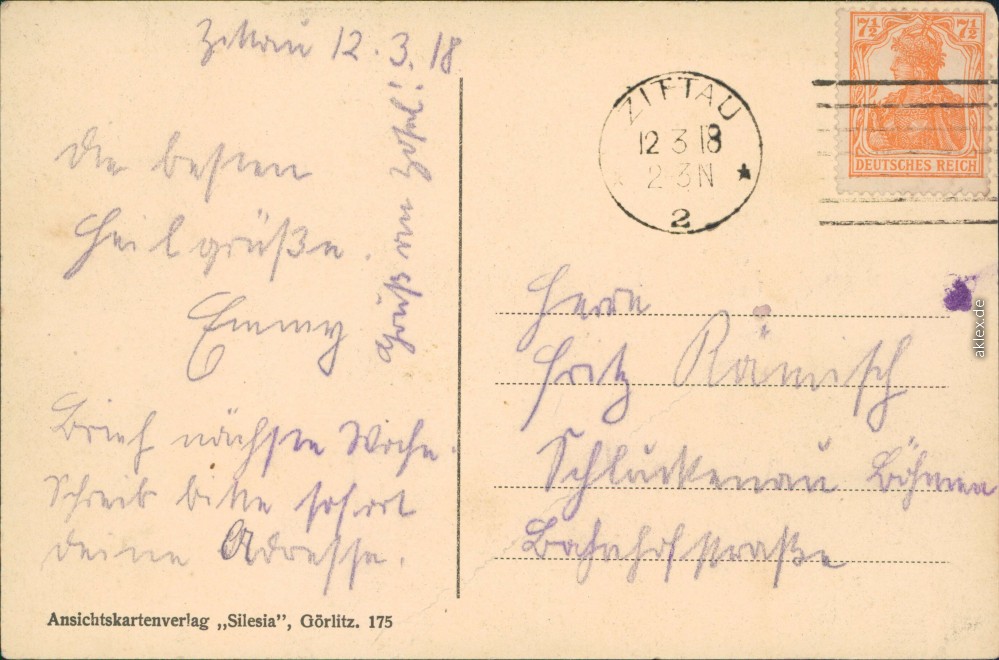 Zittau 12.3.18
Die besten
Heilgrüße.
Emmy
Gruß von
Brief nächsten Woche.
Schreib bitte sofort
deine Adresse.
Ansichtskartenverlag „Silesia”, Görlitz. 175
ZITTAU
12 3 18
2-3N
2
7½ 7½
DEUTSCHES REICH
Herrn
Fritz Rämisch
Schluckenau Böhmen
Bahnhofstraße
aklex.de